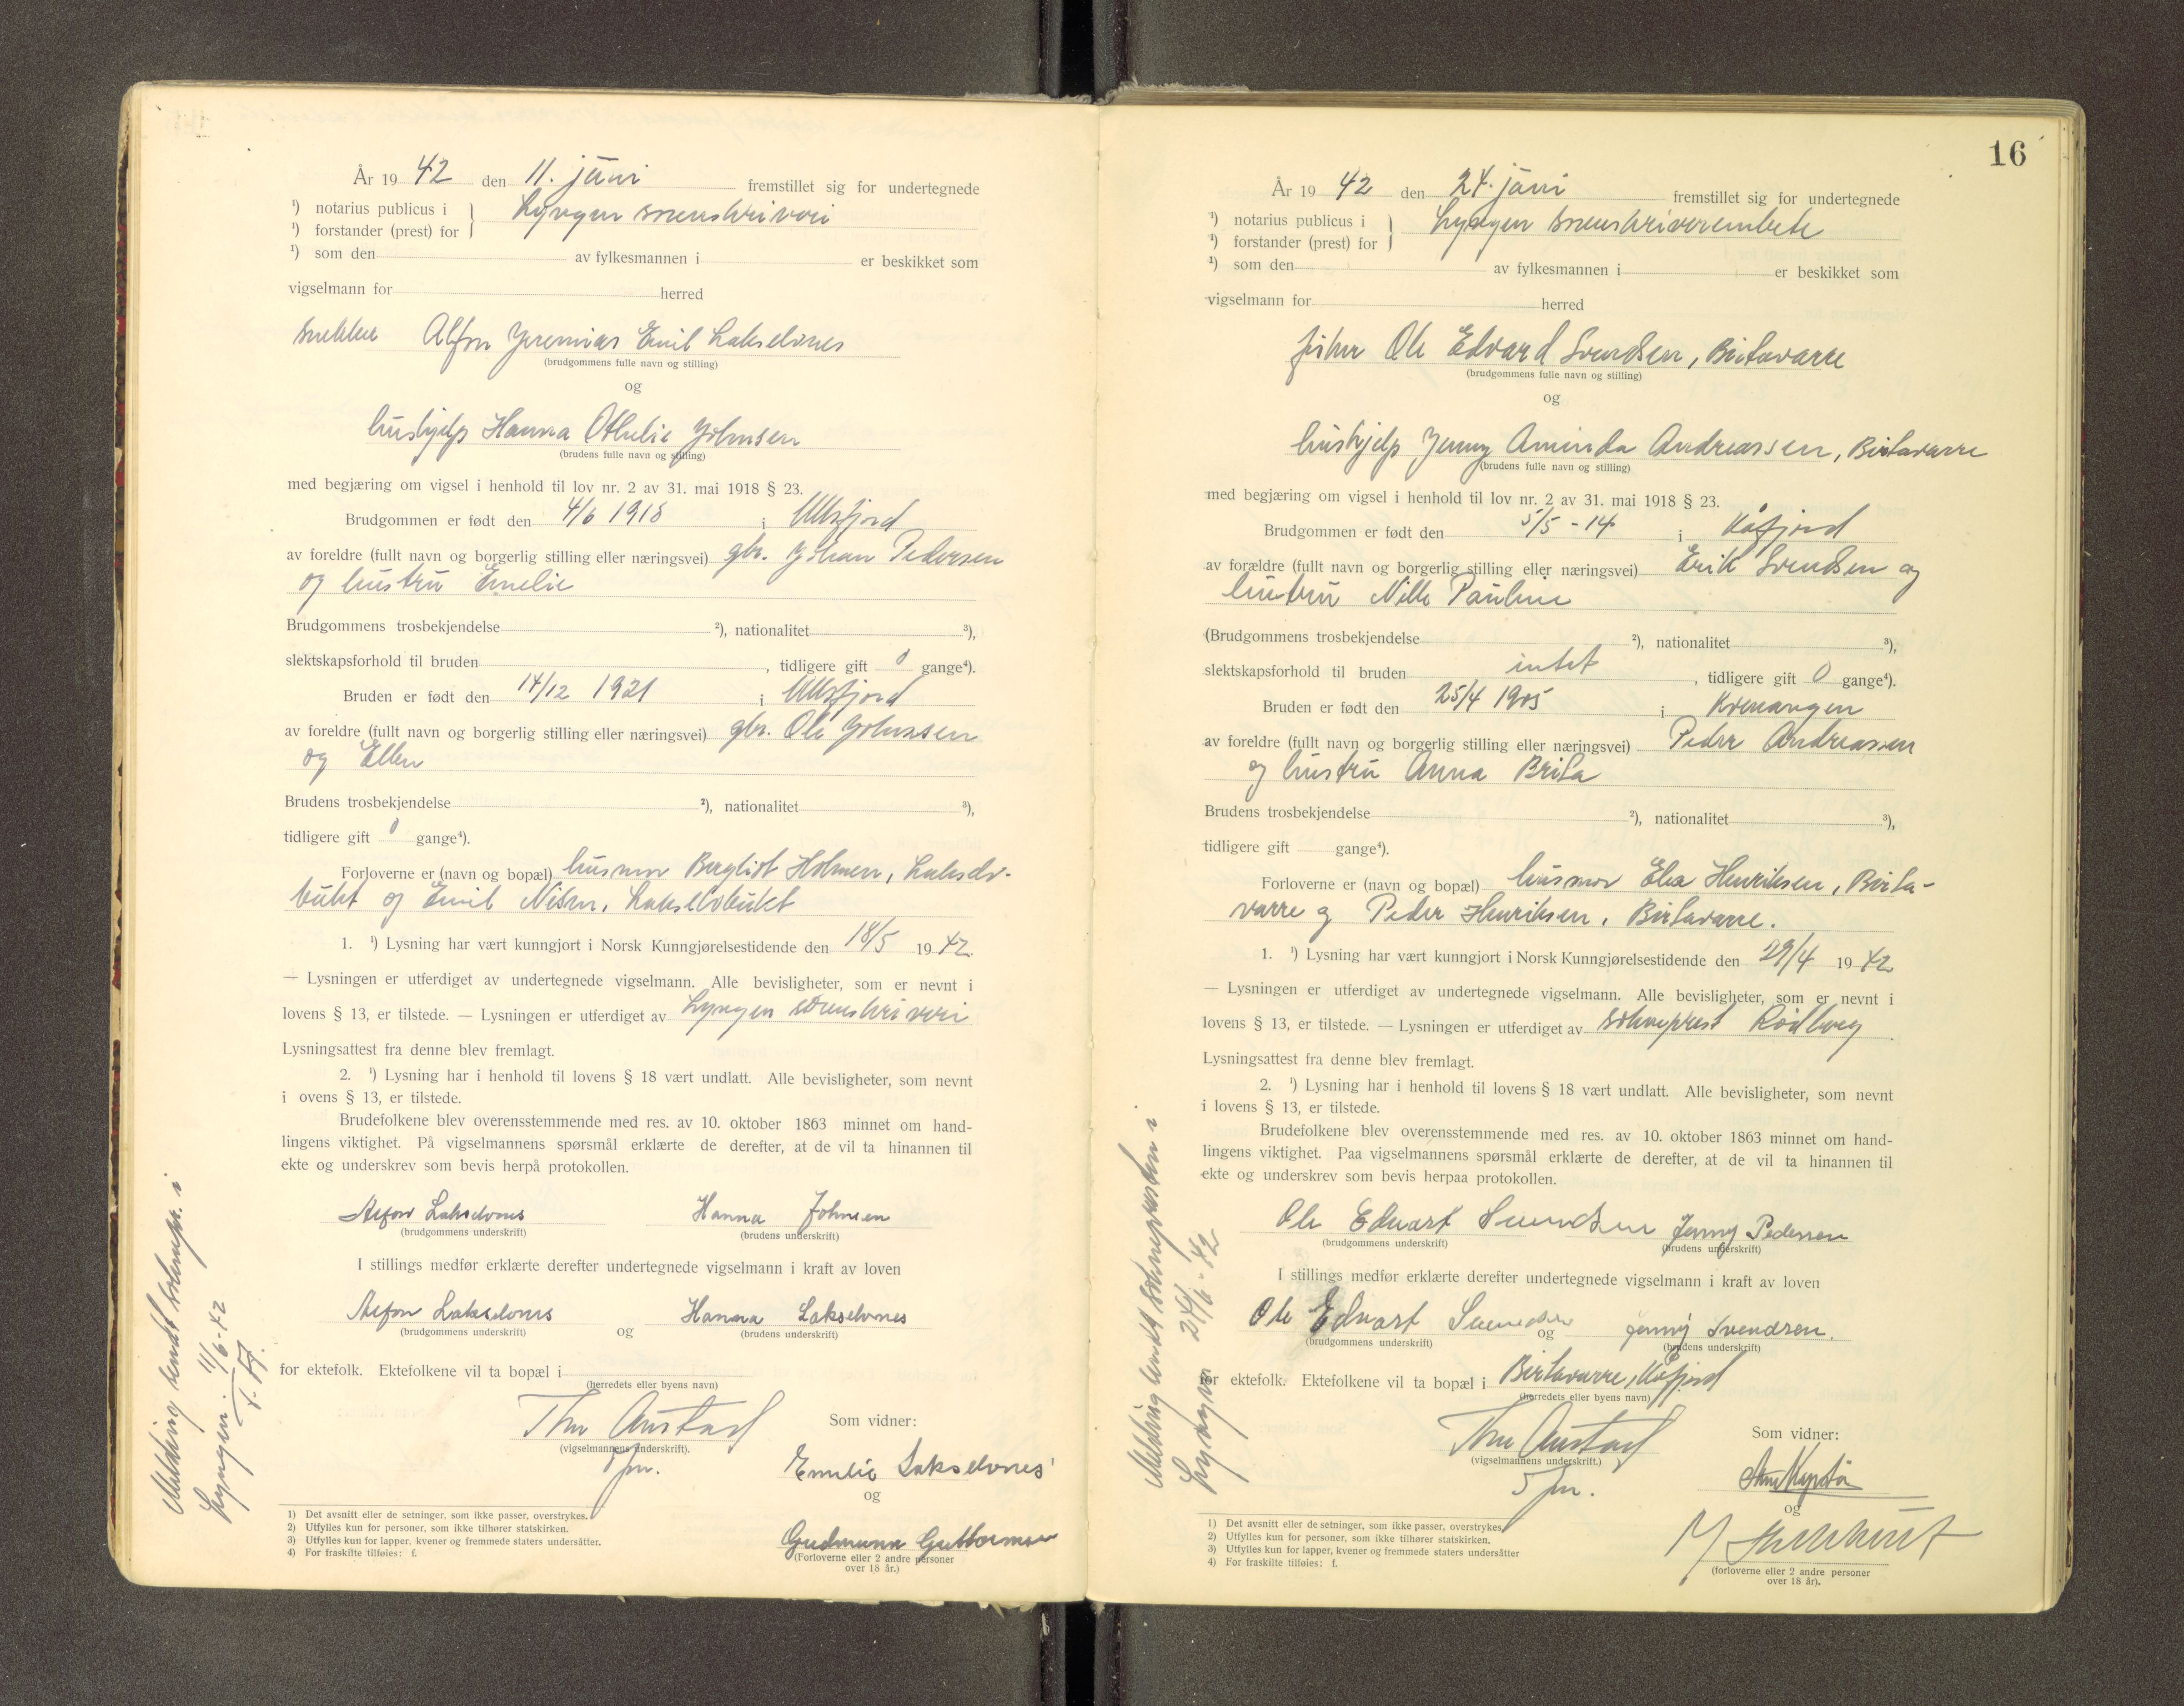 År 19 42 den 11. juni fremstillet sig for undertegnede
¹) notarius publicus i
¹) forstander (prest) for
Lyngen sorenskriveri
¹) som den av fylkesmannen i er beskikket som
vigselmann for herred
snekker Alfon Jeremias Emil Lakselvnes
(brudgommens fulle navn og stilling)
og
hushjelp Hanna Othelie Johnsen
(brudens fulle navn og stilling)
med begjæring om vigsel i henhold til lov nr. 2 av 31. mai 1918 § 23.
Brudgommen er født den 4/6 1918 i Ullsfjord
av foreldre (fullt navn og borgerlig stilling eller næringsvei) gbr. Johan Pedersen
og hustru Emelie
Brudgommens trosbekjendelse ²), nationalitet ³),
slektskapsforhold til bruden , tidligere gift 0 gange⁴).
Bruden er født den 14/12 1921 i Ullsfjord
av foreldre (fullt navn og borgerlig stilling eller næringsvei) gbr. Ole Johnsen
og Ellen
Brudens trosbekjendelse ²), nationalitet ³),
tidligere gift 0 gange⁴).
Forloverne er (navn og bopæl) husmor Bergliot Holmen, Lakselv-
bukt og Emil Nilsen, Lakselvbukt
1. ¹) Lysning har vært kunngjort i Norsk Kunngjørelsestidende den 18/5 19 42.
— Lysningen er utferdiget av undertegnede vigselmann. Alle bevisligheter, som er nevnt i
lovens § 13, er tilstede. — Lysningen er utferdiget av Lyngen sorenskriveri
Lysningsattest fra denne blev fremlagt.
2. ¹) Lysning har i henhold til lovens § 18 vært undlatt. Alle bevisligheter, som nevnt
i ovens § 13, er tilstede.
Brudefolkene blev overensstemmende med res. av 10. oktober 1863 minnet om hand-
lingens viktighet. På vigselmannens spørsmål erklærte de derefter, at de vil ta hinannen til
ekte og underskrev som bevis herpå protokollen.
Alfon Lakselvnes Hanna Johnsen
(brudgommens underskrift) (brudens underskrift)
I stillings medfør erklærte derefter undertegnede vigselmann i kraft av loven
Alfon Lakselvnes og Hanna Lakselvnes
(brudgommens underskrift) (brudens underskrift)
for ektefolk. Ektefolkene vil ta bopæl i
(herredets eller byens navn)
Thv Austad
(vigselmannens underskrift).
fm.
Som vidner:
Emelie Lakselvnes
og
Gudmunn Guttormsen
(Forloverne eller 2 andre personer
over 18 år.)
1) Det avsnitt eller de setninger, som ikke passer, overstrykes.
2) Utfylles kun for personer, som ikke tilhører statskirken.
3) Utfylles kun for lapper, kvener og fremmede staters undersåtter.
4) For fraskilte tilføies: f.
Melding sendt soknepr. i
Lyngen. 11/6-42
16
År 19 42 den 24. juni fremstillet sig for undertegnede
¹) notarius publicus i
¹) forstander (prest) for
Lyngen sorenskriverembete
¹) som den av fylkesmannen i er beskikket som
vigselmann for herred
fisker Ole Edvard Svendsen, Birtavarre
(brudgommens fulle navn og stilling)
og
hushjelp Jenny Aminda Andreassen, Birtavarre
(brudens fulle navn og stilling)
med begjæring om vigsel i henhold til lov nr. 2 av 31. mai 1918 § 23.
Brudgommen er født den 5/5 - 14 i Kåfjord
av forældre (fullt navn og borgerlig stilling eller næringsvei) Erik Svendsen og
hustru Nille Pauline
(Brudgommens trosbekjendelse ²), nationalitet ³),
slektskapsforhold til bruden intet , tidligere gift 0 gange⁴).
Bruden er født den 25/4 1905 i Kvenangen
av foreldre (fullt navn og borgerlig stilling eller næringsvei) Peder Andreassen
og hustru Anna Brita
Brudens trosbekjendelse ²), nationalitet ³),
tidligere gift gange⁴).
Forloverne er (navn og bopæl) husmor Elea Henriksen, Birta-
varre og Peder Henriksen, Birtavarre.
1. ¹) Lysning har vært kunngjort i Norsk Kunngjørelsestidende den 29/4 19 42
— Lysningen er utferdiget av undertegnede vigselmann. Alle bevisligheter, som er nevnt i
lovens § 13, er tilstede. — Lysningen er utferdiget av sokneprest Rødberg
Lysningsattest fra denne blev fremlagt.
2. ¹) Lysning har i henhold til lovens § 18 vært undlatt. Alle bevisligheter, som nevnt
i lovens § 13, er tilstede.
Brudefolkene blev overensstemmende med res. av 10. oktober 1863 minnet om hand-
lingens viktighet. Paa vigselmannens spørsmål erklærte de derefter, at de vil ta hinannen til
ekte og underskrev som bevis herpaa protokollen.
Ole Edvart Svendsen Jenny Pedersen
(brudgommens underskrift) (brudens underskrift)
I stillings medfør erklærte derefter undertegnede vigselmann i kraft av loven
Ole Edvart Svendsen og Jenny Svendsen.
(brudgommens underskrift) (brudens underskrift)
for ektefolk. Ektefolkene vil ta bopæl i Birtavarre, Kåfjord
(herredets eller byens navn)
Thv Austad
(vigselmannens underskrift.)
fm.
Som vidner:
og
(forloverne eller 2 andre personer
over 18 år).
1) Det avsnitt eller de setninger, som ikke passer, overstrykes
2) Utfylles kun for personer, som ikke tilhører statskirken.
3) Utfylles kun for lapper, kvener og fremmede staters undersåtter
4) For fraskilte tilføies: f.
Melding sendt soknepresten i
Lyngen 24/6-42